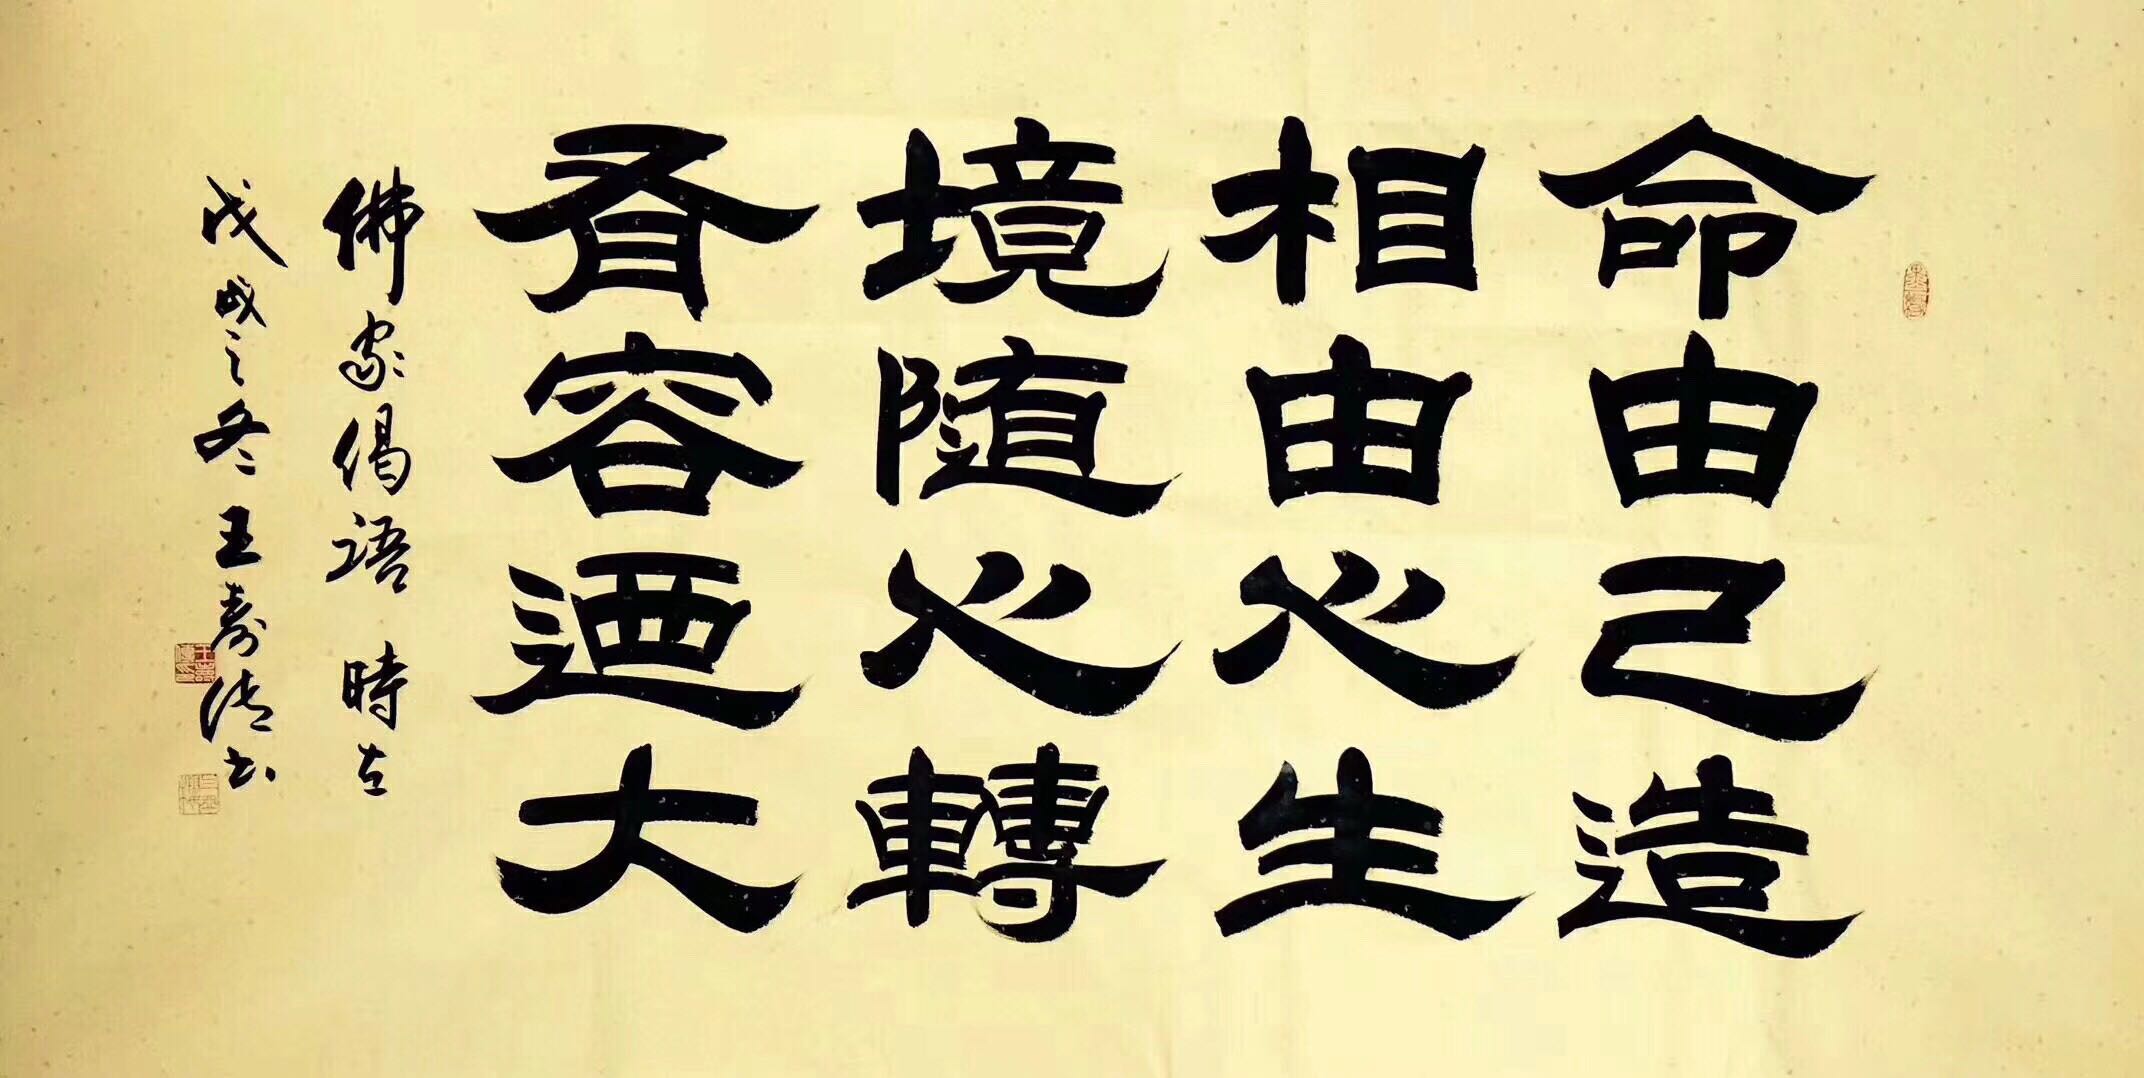 命由己造
相由心生
境随心轉
有容迺大
佛家偈語 時在
戊戌之冬 王壽清書